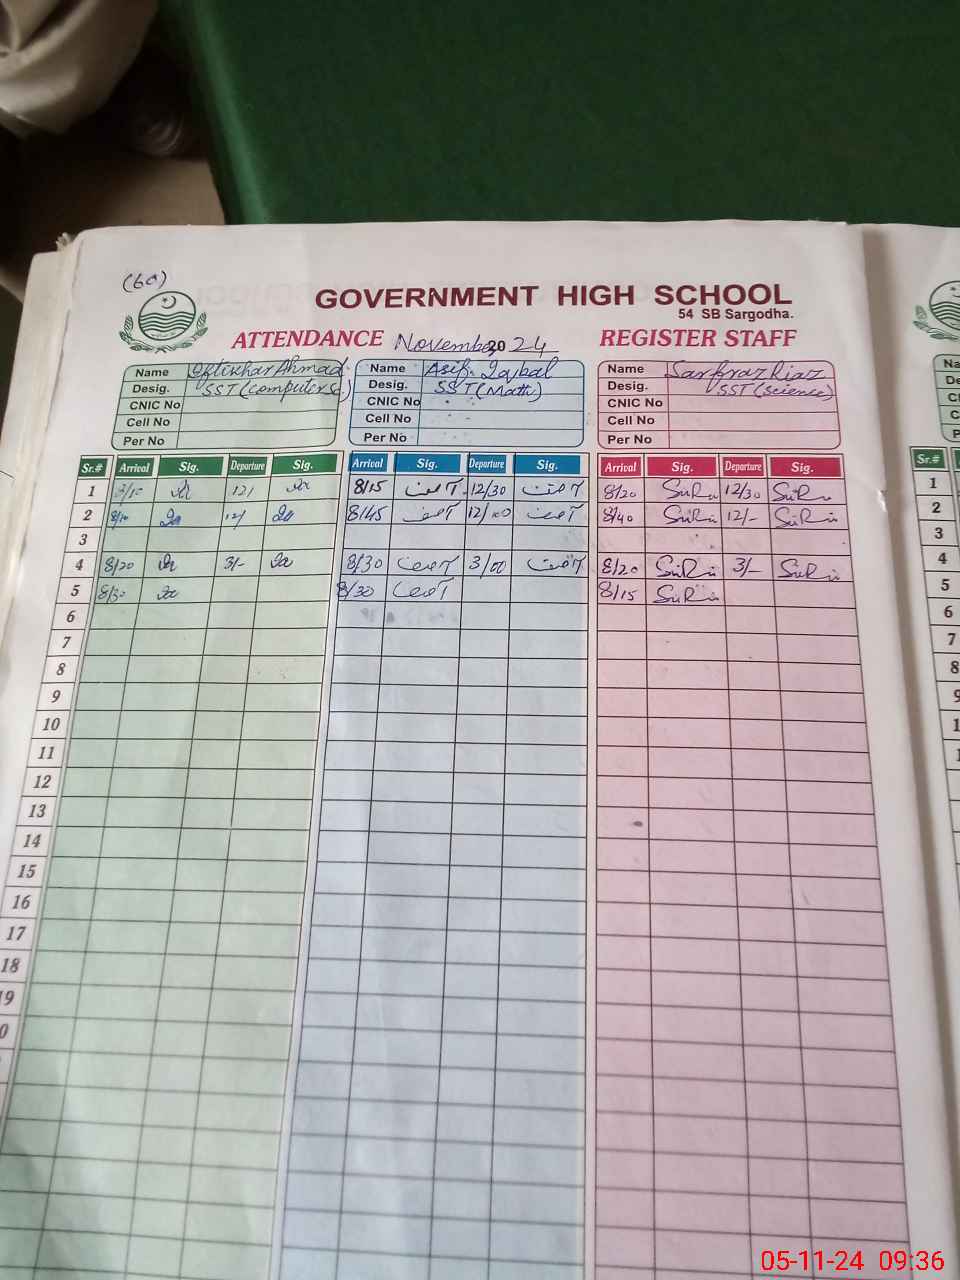 (60)
GOVERNMENT HIGH SCHOOL
54 SB Sargodha.
ATTENDANCE November 2024 REGISTER STAFF
Name Iftikhar Ahmad Name Asif Iqbal Name Sarfraz Riaz
Desig. SST (Computer Sc.) Desig. SST (Math) Desig. SST (Science)
CNIC No CNIC No CNIC No
Cell No Cell No Cell No
Per No Per No Per No
Sr.# Arrival Sig. Departure Sig. Arrival Sig. Departure Sig. Arrival Sig. Departure Sig. Sr.#
1 8/15 آصف 12/30 آصف 8/20 12/30 1
2 8/45 آصف 12/00 آصف 8/40 12/- 2
3 3
4 8/20 3/- 8/30 آصف 3/00 آصف 8/20 3/- 4
5 8/30 8/30 آصف 8/15 5
6 6
7 7
8 8
9 9
10
11
12
13
14
15
16
17
18
19
05-11-24 09:36